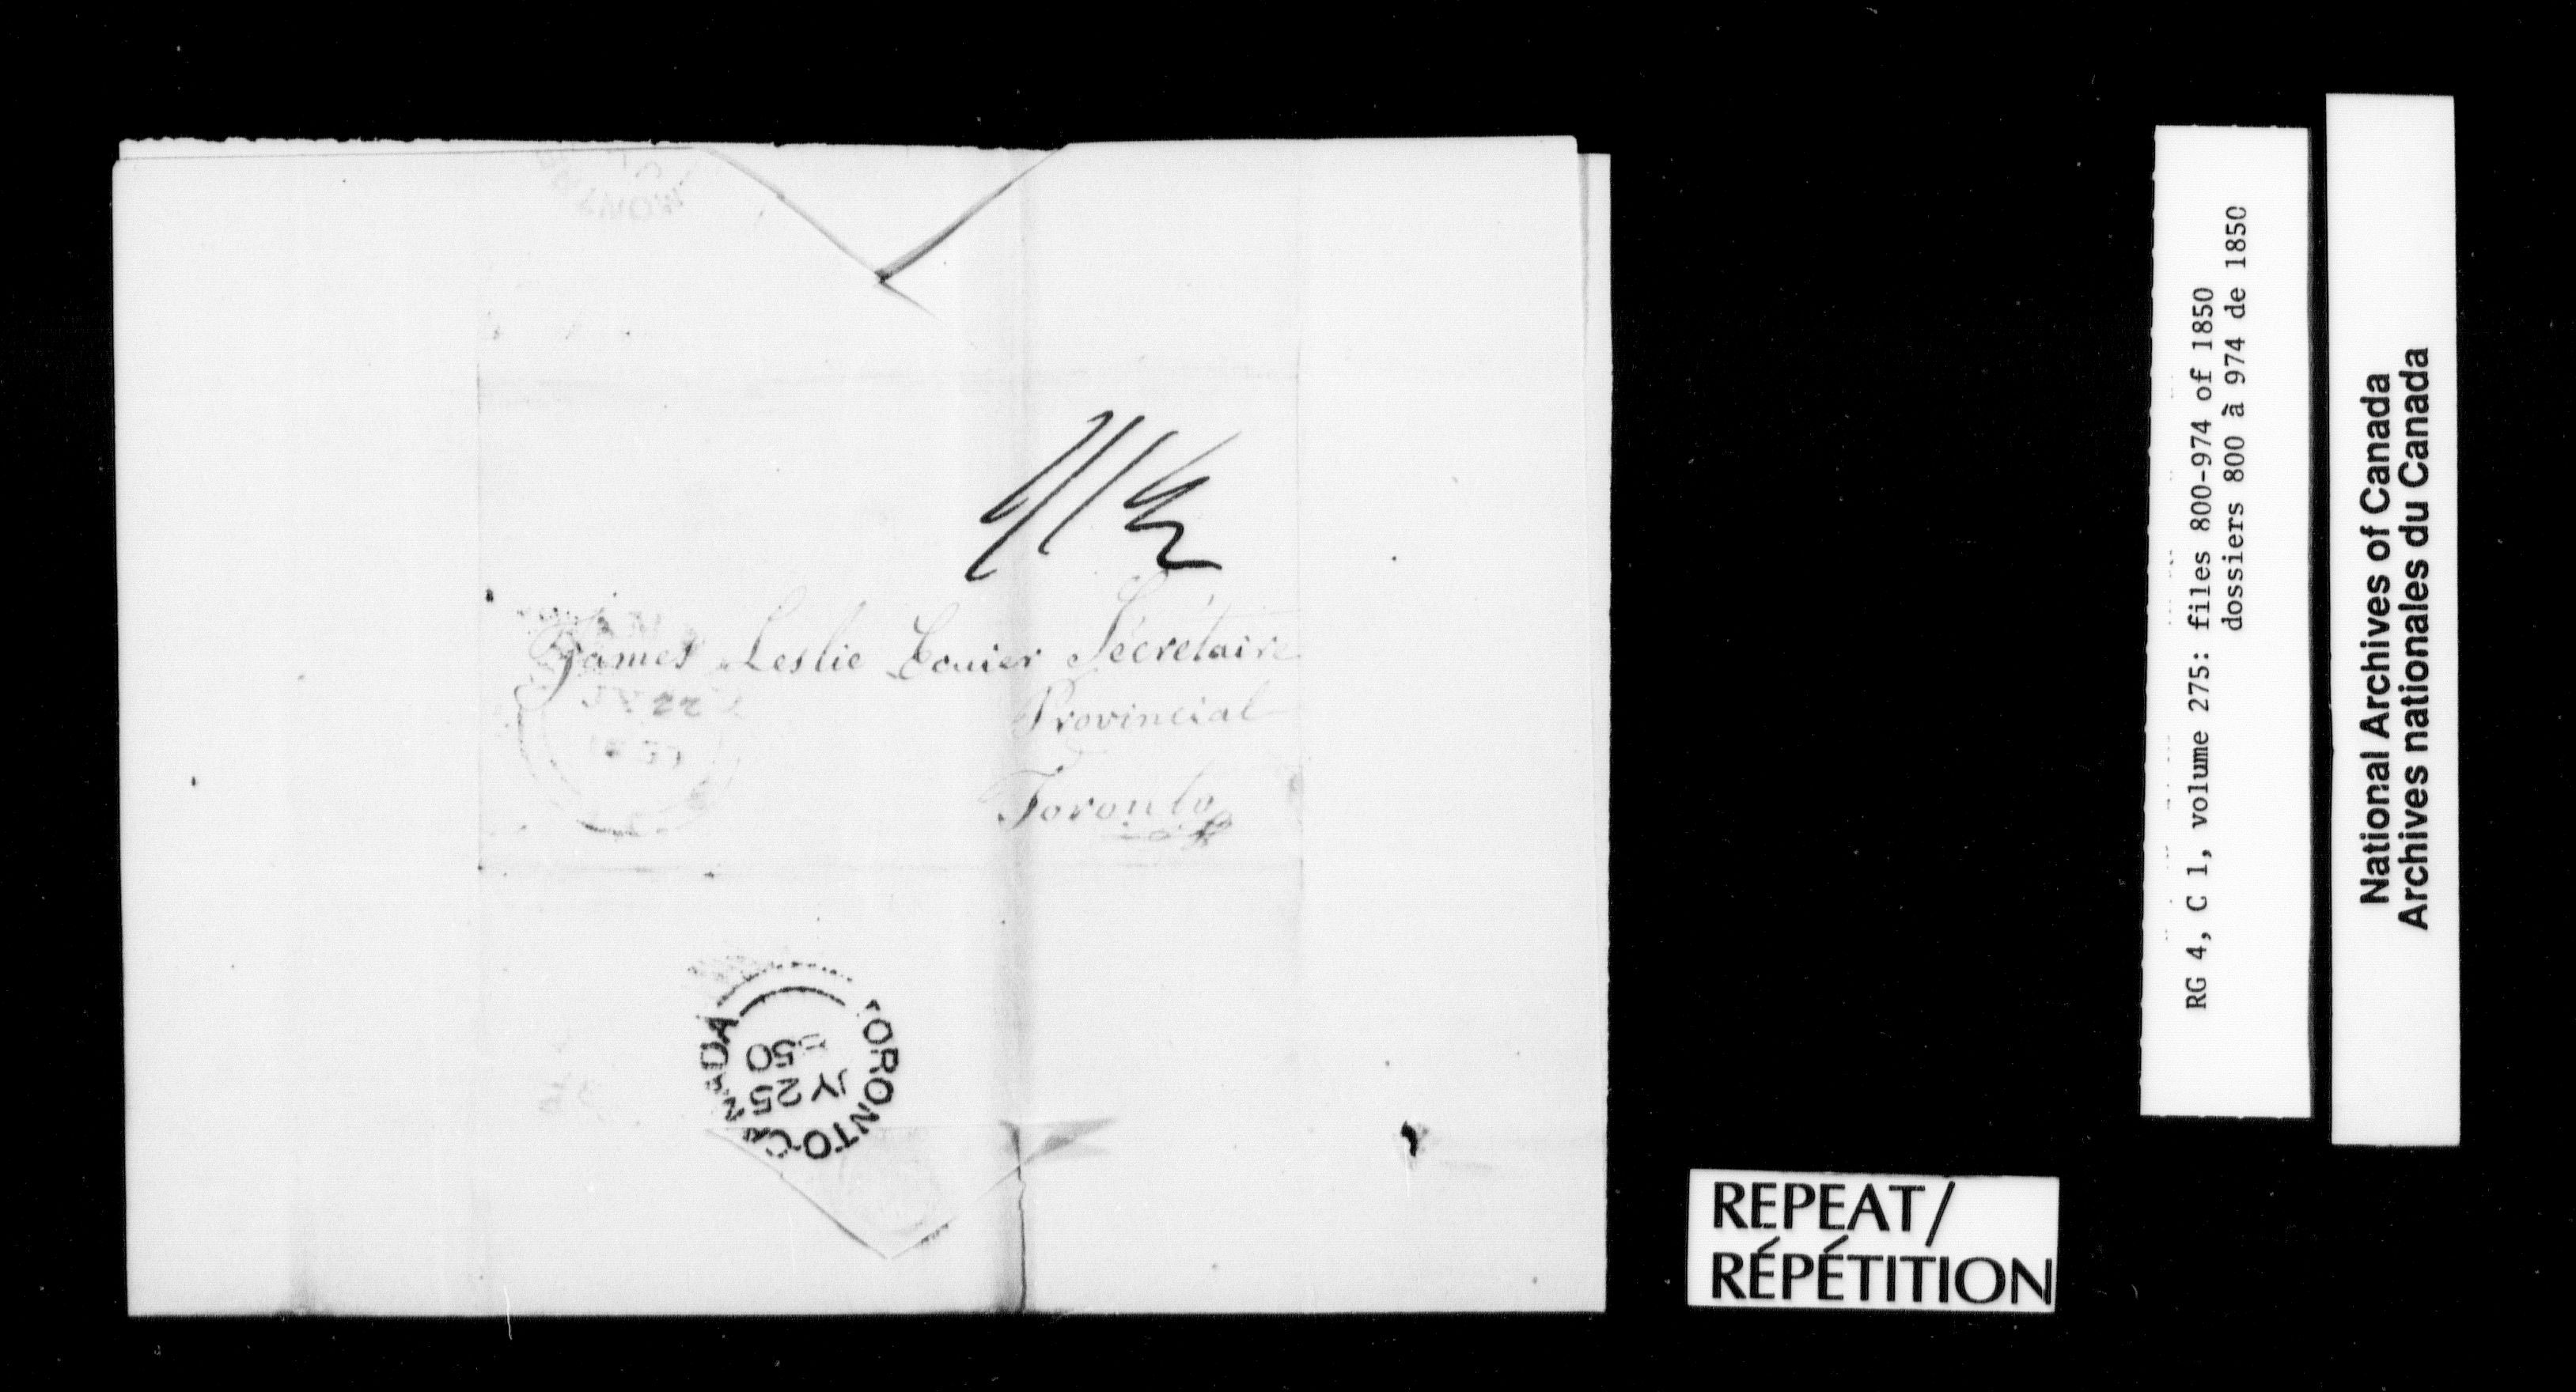 1/1½
James Leslie Ecuier Sécrétaire
Provincial
Toronto
22
TORONTO CANADA
JY 25
50
REPEAT/
RÉPÉTITION
RG 4, C 1, volume 275: files 800-974 of 1850
dossiers 800 à 974 de 1850
National Archives of Canada
Archives nationales du Canada